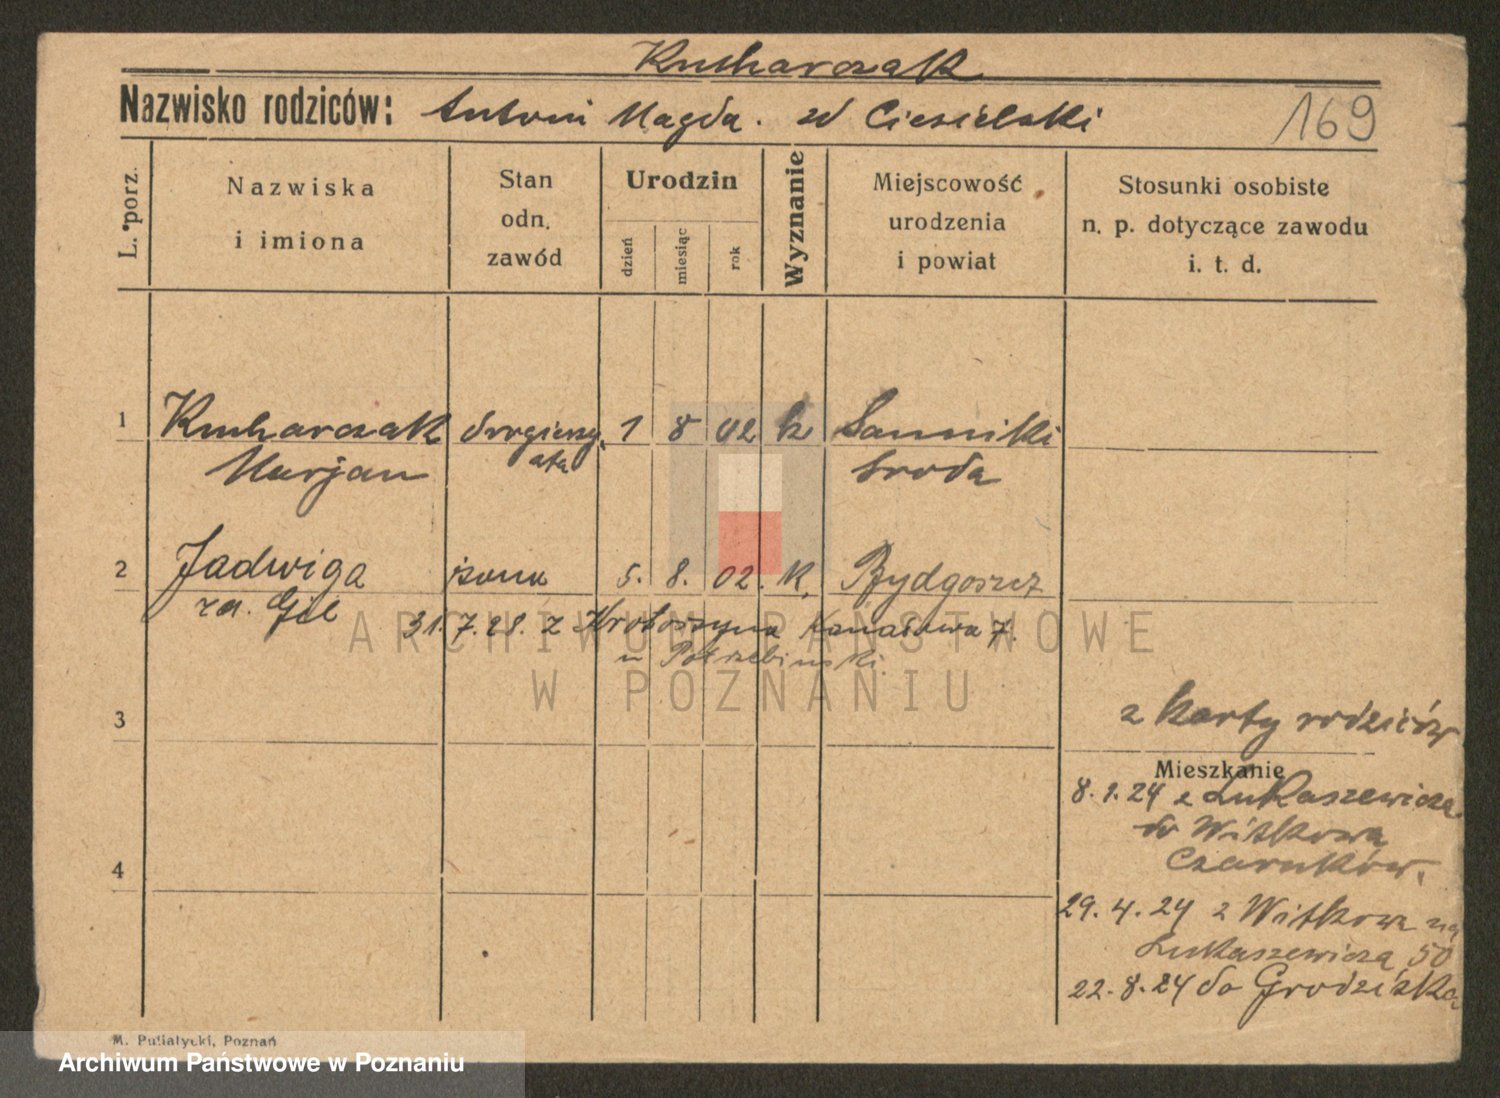 Kucharczak
Nazwisko rodziców: Antoni Magda. zd Ciesielski
169
L. porz.
Nazwiska
i imiona
Stan
odn.
zawód
Urodzin
dzień
miesiąc
rok
Wyznanie
Miejscowość
urodzenia
i powiat
Stosunki osobiste
n. p. dotyczące zawodu
i. t. d.
1 Kucharczak 1 8 02 k Sanniki
Marjan Środa
2 Jadwiga żona 5. 8. 02. K. Bydgoszcz
31. 7. 28. z Krotoszyna 7.
u Potrzebinski
3
z karty rodziców
Mieszkanie
8. 1. 24 z Łukaszewicza
do Witkowa
Czarnków.
4
29. 4. 24 z Witkowa na
Łukaszewicza 50
22. 8. 24 do Grodziska
M. Putiatycki, Poznań
ARCHIWUM PAŃSTWOWE
W POZNANIU
Archiwum Państwowe w Poznaniu